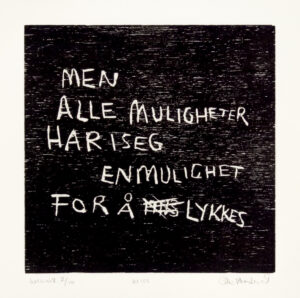 MEN
ALLE MULIGHETER
HAR I SEG
EN MULIGHET
FOR Å LYKKES